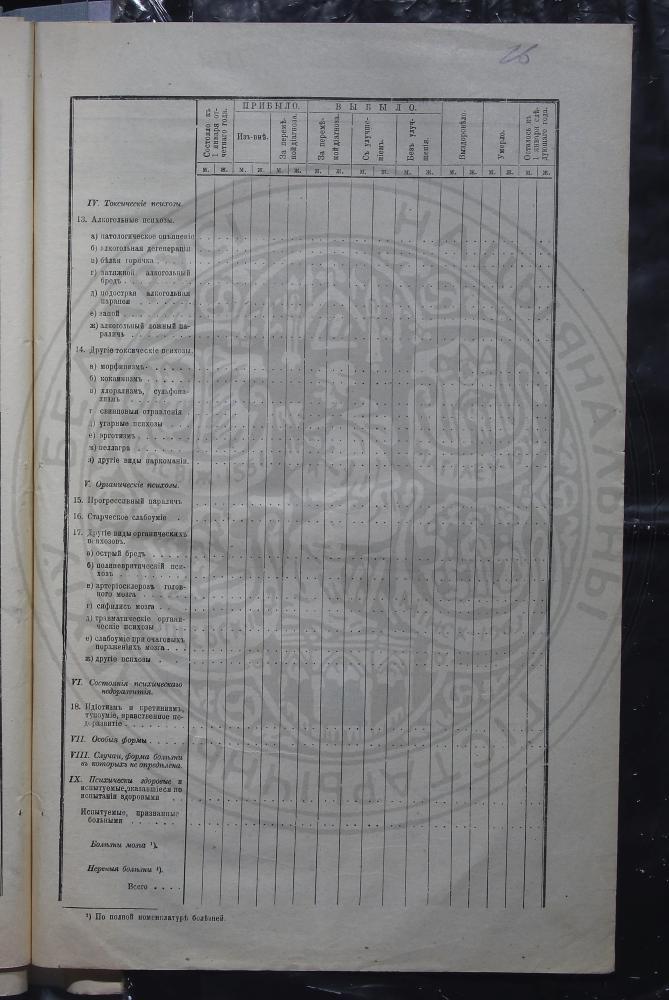 26
ПРИБЫЛО.
ВЫБЫЛО.
Состояло къ
1 января от-
четнаго года.
Изъ-внѣ.
За перемѣ-
ной діагноза.
За перемѣ-
ной діагноза.
Съ улучше-
ніемъ.
Безъ улуч-
шенія.
Выздоровѣло.
Умерло.
Осталось къ
1 января слѣ-
дующаго года.
м. ж. м. ж. м. ж. м. ж. м. ж. м. ж. м. ж. м. ж. м. ж.
IV. Токсическіе психозы.
13. Алкогольные психозы.
а) патологическое опьяненіе
б) алкогольная дегенерація
в) бѣлая горячка . . . .
г) затяжной алкогольный
бредъ . . . . . . .
д) подострая алкогольная
параноя . . . . . .
е) запой . . . . . . .
ж) алкогольный ложный па-
раличъ . . . . . .
14. Другіе токсическіе психозы.
а) морфинизмъ . . . . .
б) кокаинизмъ . . . . .
в) хлорализмъ, сульфона-
лизмъ . . . . . . .
г) свинцовыя отравленія
д) угарные психозы . . .
е) эрготизмъ . . . . . .
ж) пеллагра . . . . . .
з) другіе виды наркоманіи.
V. Органическіе психозы.
15. Прогрессивный параличъ
16. Старческое слабоуміе .
17. Другіе виды органическихъ
психозовъ.
а) острый бредъ . . . . .
б) полиневритическій пси-
хозъ . . . . . . .
в) артеріосклерозъ голов-
ного мозга . . . . .
г) сифилисъ мозга . . . .
д) травматическіе органи-
ческіе психозы . . .
е) слабоуміе при очаговыхъ
пораженіяхъ мозга . . .
ж) другіе психозы . . . .
VI. Состоянія психическаго
недоразвитія.
18. Идіотизмъ и кретинизмъ,
тупоуміе, нравственное не-
доразвитіе . . . . . .
VII. Особыя формы . . . .
VIII. Случаи, форма болѣзни
въ которыхъ не опредѣлена.
IX. Психически здоровые и
испытуемые, оказавшіеся по
испытаніи здоровыми . . .
Испытуемые, признанные
больными . . . . . .
Болѣзни мозга ¹).
Нервныя болѣзни ¹).
Всего . . . .
¹) По полной номенклатурѣ болѣзней.